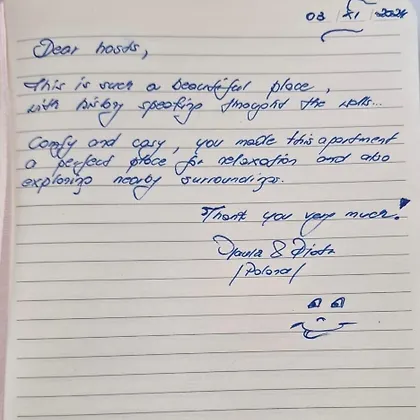 03 XI 2024
Dear hosts,
This is such a beautiful place,
with history speaking thought the walls...
Comfy and cosy, you made this apartment
a perfect place for relaxation and also
exploring nearby surroundings.
Thank you very much.
Paula & Piotr
/Poland/